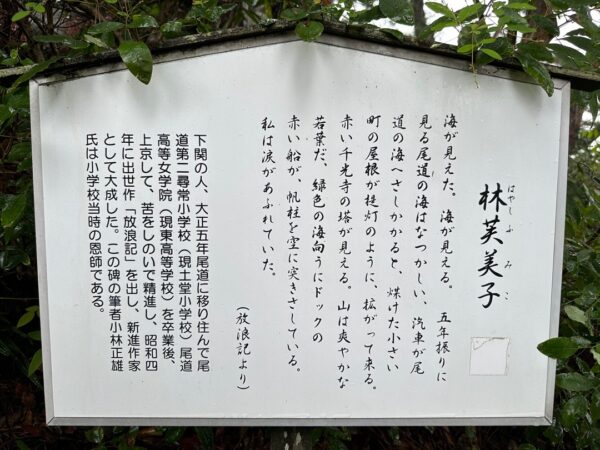 はやしふみこ
林芙美子
海が見えた。海が見える。 五年振りに
見る尾道の海はなつかしい、汽車が尾
道の海へさしかかると、煤けた小さい
町の屋根が提灯のように、拡がって来る。
赤い千光寺の塔が見える。山は爽やかな
若葉だ、緑色の海向うにドックの
赤い船が、帆柱を空に突きさしている。
私は涙があふれていた。
(放浪記より)
下関の人、大正五年尾道に移り住んで尾
道第二尋常小学校(現土堂小学校)尾道
高等女学院(現東高等学校)を卒業後、
上京して、苦をしのいで精進し、昭和四
年に出世作「放浪記」を出し、新進作家
として大成した。この碑の筆者小林正雄
氏は小学校当時の恩師である。